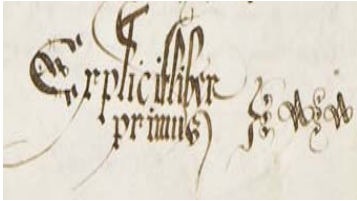 Explicit liber
primus